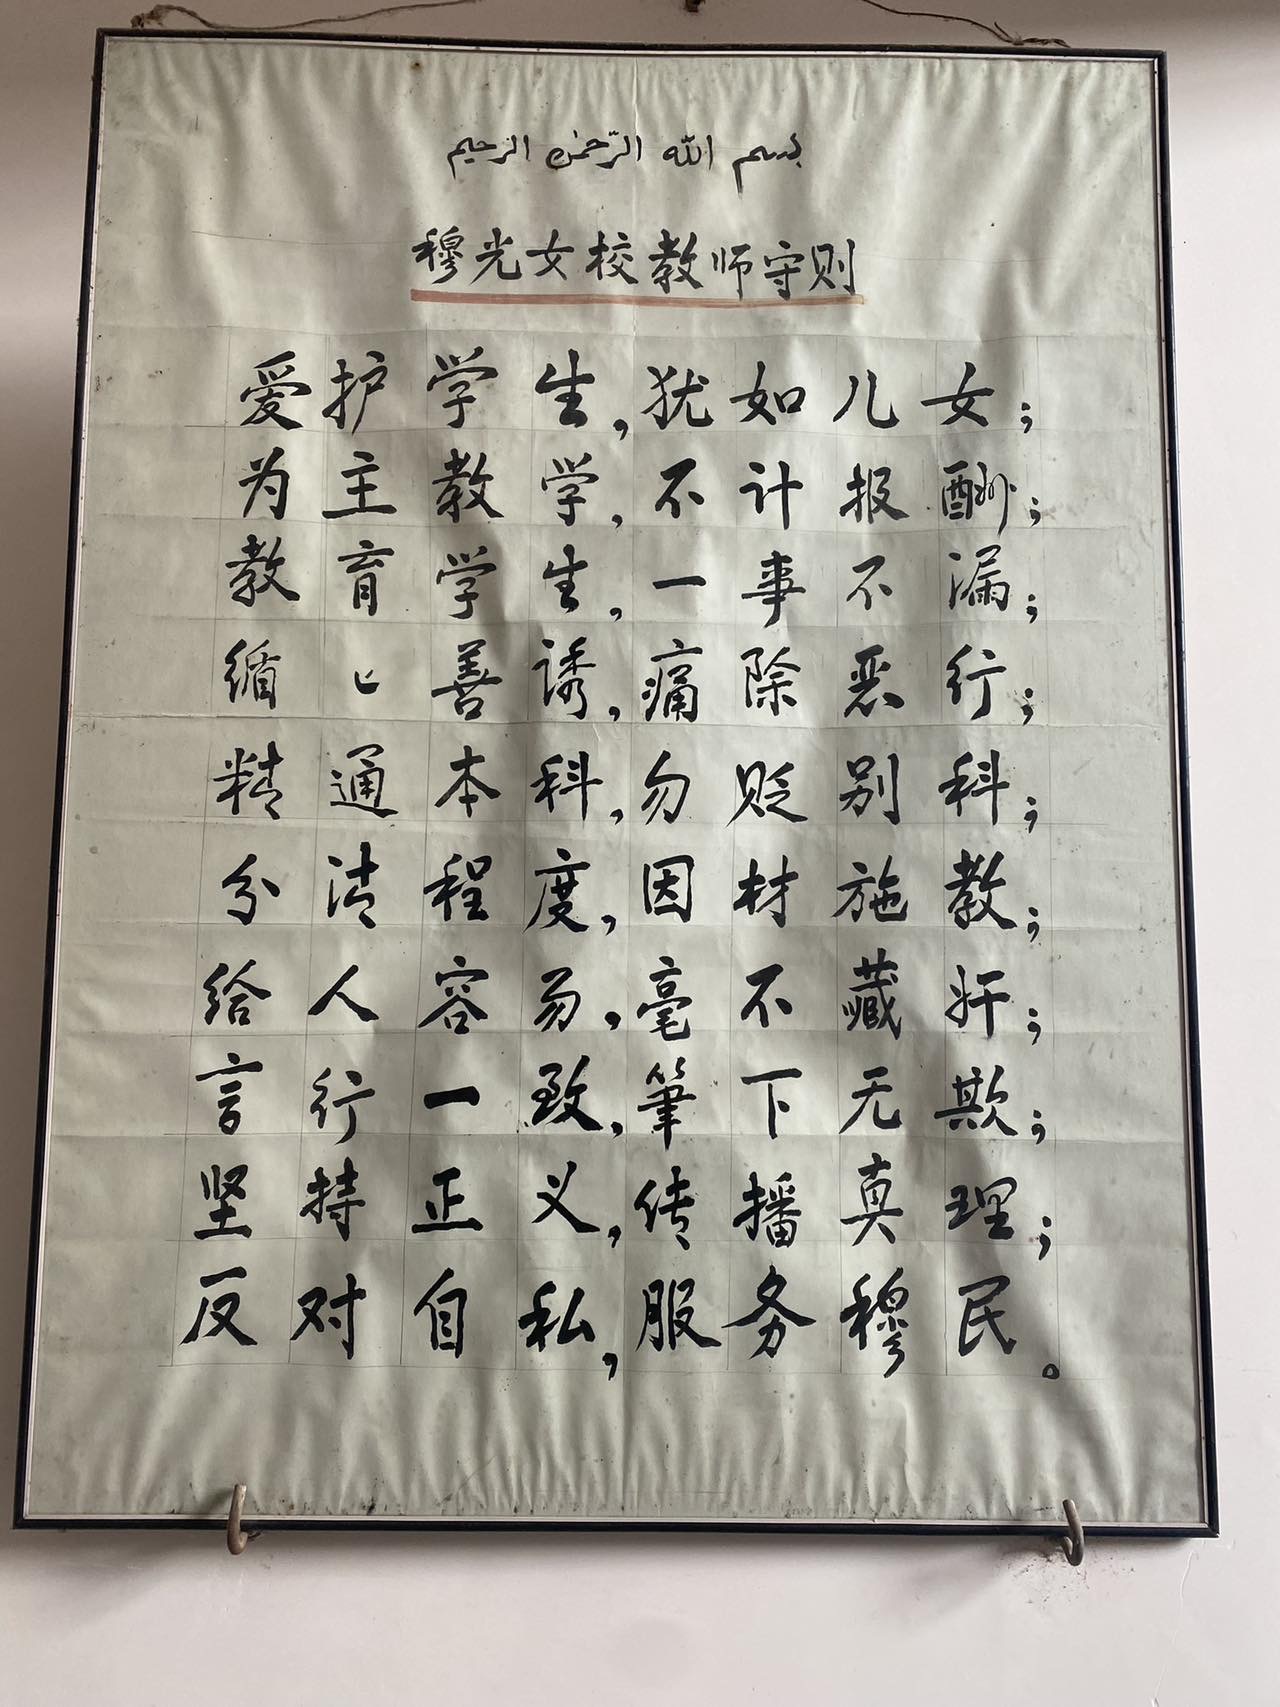 بسم الله الرّحمٰن الرحيم
穆光女校教师守则
爱护学生,犹如儿女;
为主教学,不计报酬;
教育学生,一事不漏;
循〻善诱,痛除恶行;
精通本科,勿贬别科;
分清程度,因材施教;
给人容易,毫不藏奸;
言行一致,笔下无欺;
坚持正义,传播真理;
反对自私,服务穆民。